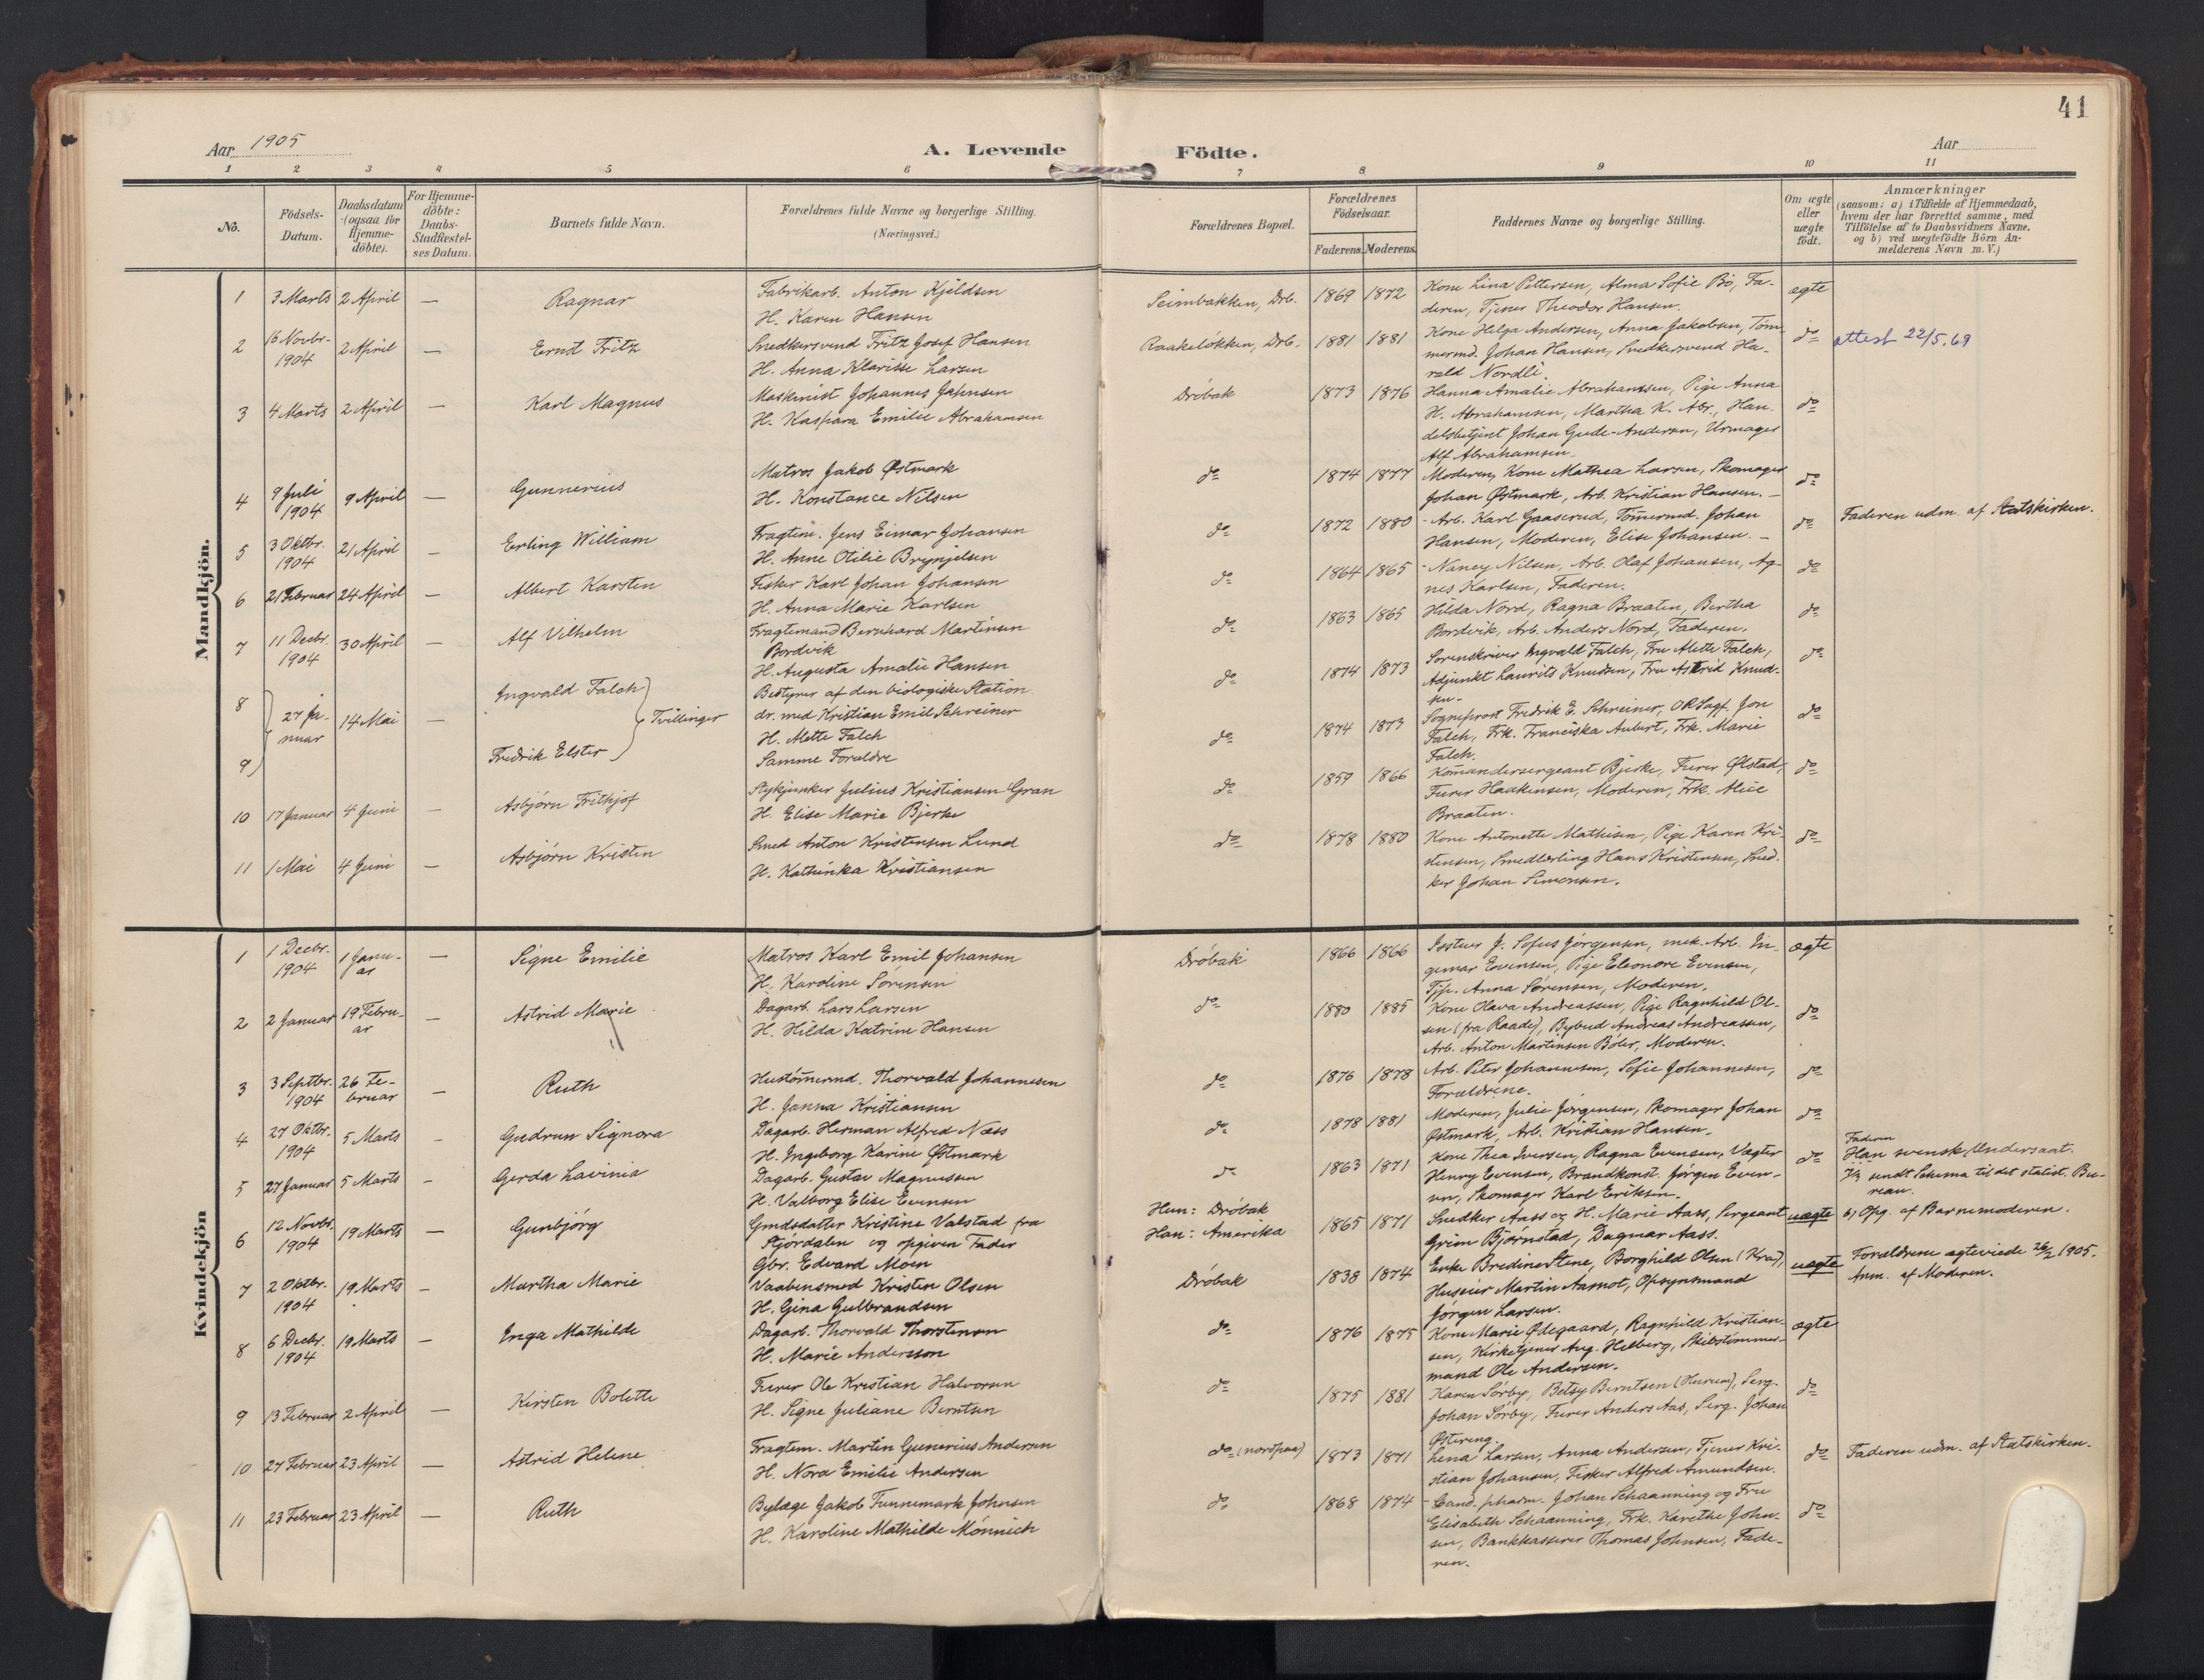 41
Aar 1905
A. Levende Födte.
Aar
1 2 3 4 5 6 7 8 9 10 11
No.
Födsels-Datum.
Daabsdatum (ogsaa for Hjemme-döbte).
For Hjemme-döbte: Daabs-Stadfæstel-ses Datum.
Barnets fulde Navn.
Forældrenes fulde Navne og borgerlige Stilling. (Næringsvei.)
Forældrenes Bopæl.
Forældrenes Födselsaar.
Faderens. Moderens.
Faddernes Navne og borgerlige Stilling.
Om ægte eller uægte födt.
Anmærkninger (saasom: a) i Tilfælde af Hjemmedaab, hvem der har forrettet samme, med Tilföielse af to Daabsvidners Navne, og b) ved uægtefödte Börn An-melderens Navn m. V.)
Mandkjön.
1 3 Marts 2 April — Ragnar Fabrikarb. Anton Kjeldsen
H. Karen Hansen
Seimbakken, Drb. 1869 1872 Kone Lina Pettersen, Alma Sofie Bö, Fa-
deren, Tjener Theodor Hansen.
ægte
2 16 Novbr. 1904 2 April — Ernst Fritz Snedkersvend Fritz Josef Hansen
H. Anna Klarisse Larsen
Raakelökken, Drb. 1881 1881 Kone Helga Andersen, Anna Jakobsen, Töm-
mermd. Johan Hansen, Snedkersvend Ha-
rald Nordli.
do attest 22/5.69
3 4 Marts 2 April — Karl Magnus Maskinist Johannes Jahnsen
H. Kaspara Emilie Abrahamsen
Dröbak 1873 1876 Hanna Amalie Abrahamsen, Pige Anna
H. Abrahamsen, Martha K. Abr., Han-
delsbetjent Johan Gude-Andersen, Urmager
Alf Abrahamsen.
do
4 9 Juli 1904 9 April — Gunnerius Matros Jakob Østmark
H. Konstance Nilsen
do 1874 1877 Moderen, Kone Mathea Larsen, Skomager
Johan Østmark, Arb. Kristian Hansen. —
do
5 3 Oktbr. 1904 21 April — Erling William Fragtem. Jens Eimar Johansen
H. Anne Otilie Brynjelsen
do 1872 1880 Arb. Karl Gaaserud, Tömermd. Johan
Hansen, Moderen, Elise Johansen. —
do Faderen udm. af Statskirken.
6 21 Februar 24 April — Albert Karsten Fisker Karl Johan Johansen
H. Anna Marie Karlsen
do 1864 1865 Nancy Nilsen, Arb. Olaf Johansen, Ag-
nes Karlsen, Faderen.
do
7 11 Decbr. 1904 30 April — Alf Vilhelm Fragtemand Bernhard Martinsen
Bordvik
H. Augusta Amalie Hansen
do 1863 1865 Hilda Nord, Ragna Braaten, Bertha
Bordvik, Arb. Anders Nord, Faderen.
do
8 27 Ja-nuar 14 Mai — Ingvald Falch Tvillinger Bestyrer af den biologiske Station
dr. med Kristian Emil Schreiner
H. Alette Falch
do 1874 1873 Sorenskriver Ingvald Falch, Fru Alette Falch,
Adjunkt Laurits Knudsen, Fru Astrid Knud-
sen.
do
9 Fredrik Elster Samme Forældre
do 1874 1873 Sogneprost Fredrik E. Schreiner, ORSagf. Jon
Falch, Frk. Franciska Aubert, Frk. Marie
Falch.
do
10 17 Januar 4 Juni — Asbjörn Frithjof Stykjunker Julius Kristiansen Gran
H. Elise Marie Bjerke
do 1859 1866 Komandersergeant Bjerke, Furer Ølstad,
Furer Haakensen, Moderen, Frk. Alice
Braaten.
do
11 1 Mai 4 Juni — Asbjörn Kristen Smed Anton Kristensen Lund
H. Kathinka Kristiansen
do 1878 1880 Kone Antonette Mathisen, Pige Karen Kri-
stensen, Smedlærling Hans Kristensen, Sned-
ker Johan Simensen.
do
Kvindekjön
1 1 Decbr. 1904 1 Janu-ar — Signe Emilie Matros Karl Emil Johansen
H. Karoline Sörensen
Dröbak 1866 1866 J. Sofus Jörgensen, mek. Arb. In-
gemar Evensen, Pige Eleonore Evensen,
Tjp. Anna Sörensen, Moderen.
ægte
2 2 Januar 19 Febru-ar — Astrid Marie Dagarb. Lars Larsen
H. Hilda Katrine Hansen
do 1880 1885 Kone Olava Andreassen, Pige Ragnhild Ol-
sen (fra Raade), Bybud Andreas Andreassen,
Arb. Anton Martinsen Böler, Moderen.
do
3 3 Septbr. 1904 26 Fe-bruar — Ruth Hustömermd. Thorvald Johannesen
H. Janna Kristiansen
do 1876 1878 Arb. Peter Johannesen, Sofie Johannesen,
Forældrene.
do
4 27 Oktbr. 1904 5 Marts - Gudrun Signora Dagarb. Herman Alfred Næss
H. Ingeborg Karine Østmark
do 1878 1881 Moderen, Julie Jörgensen, Skomager Johan
Østmark, Arb. Kristian Hansen.
do
5 27 Januar 5 Marts - Gerda Lavinia Dagarb. Gustav Magnussen
H. Valborg Elise Evensen
do 1863 1871 Kone Thea Iversen, Ragna Evensen, Vægter
Henry Evensen, Brandkonst. Jörgen Even-
sen, Skomager Karl Eriksen.
do Faderen
Han svensk Undersaat.
7/3 sendt Schema til det statist. Bu-
reau.
6 12 Novbr. 1904 19 Marts - Gunbjörg Gmdsdatter Kristine Valstad fra
Stjördalen og opgiven Fader
Gbr. Edvard Moen
Hun: Dröbak
Han: Amerika
1865 1871 Snedker Aass og H. Marie Aass, Sergeant
Grim Björnstad, Dagmar Aass.
uægte b) Opg. af Barnemoderen.
7 2 Oktbr. 1904 19 Marts - Martha Marie Vaabensmed Kristen Olsen
H. Gina Gulbrandsen
Dröbak 1838 1874 Enke Bredine Stene, Borghild Olsen (Kra),
Huseier Martin Aamot, Opsynsmand
Jörgen Larsen.
uægte Forældrene ægteviede 26/2 1905.
Anm. af Moderen.
8 6 Decbr. 1904 19 Marts — Inga Mathilde Dagarb. Thorvald Thorstensen
H. Marie Andersson
do 1876 1875 Kone Marie Ødegaard, Ragnhild Kristian-
sen, Kirketjener Aug. Helberg, Skibstömmer-
mand Ole Andersen.
ægte
9 13 Februar 2 April — Kirsten Bolette Furer Ole Kristian Halvorsen
H. Signe Juliane Berntsen
do 1875 1881 Karen Sörby, Betsy Berntsen (Hurum), Serg.
Johan Sörby, Furer Anders Aas, Serg. Johan
Østreng.
do
10 27 Februar 23 April — Astrid Helene Fragtem. Martin Gunerius Andersen
H. Nora Emilie Andersen
do (nordpaa) 1873 1871 Lena Larsen, Anna Andersen, Tjener Kri-
stian Johansen, Fisker Alfred Amundsen.
do Faderen udm. af Statskirken.
11 23 Februar 23 April — Ruth Bylæge Jakob Tunnemark Johnsen
H. Karoline Mathilde Mönnich
do 1868 1874 Cand. pharm. Johan Schaanning og Fru
Elisabeth Schaanning, Frk. Karethe John-
sen, Bankkasserer Thomas Johnsen, Fade-
ren.
do